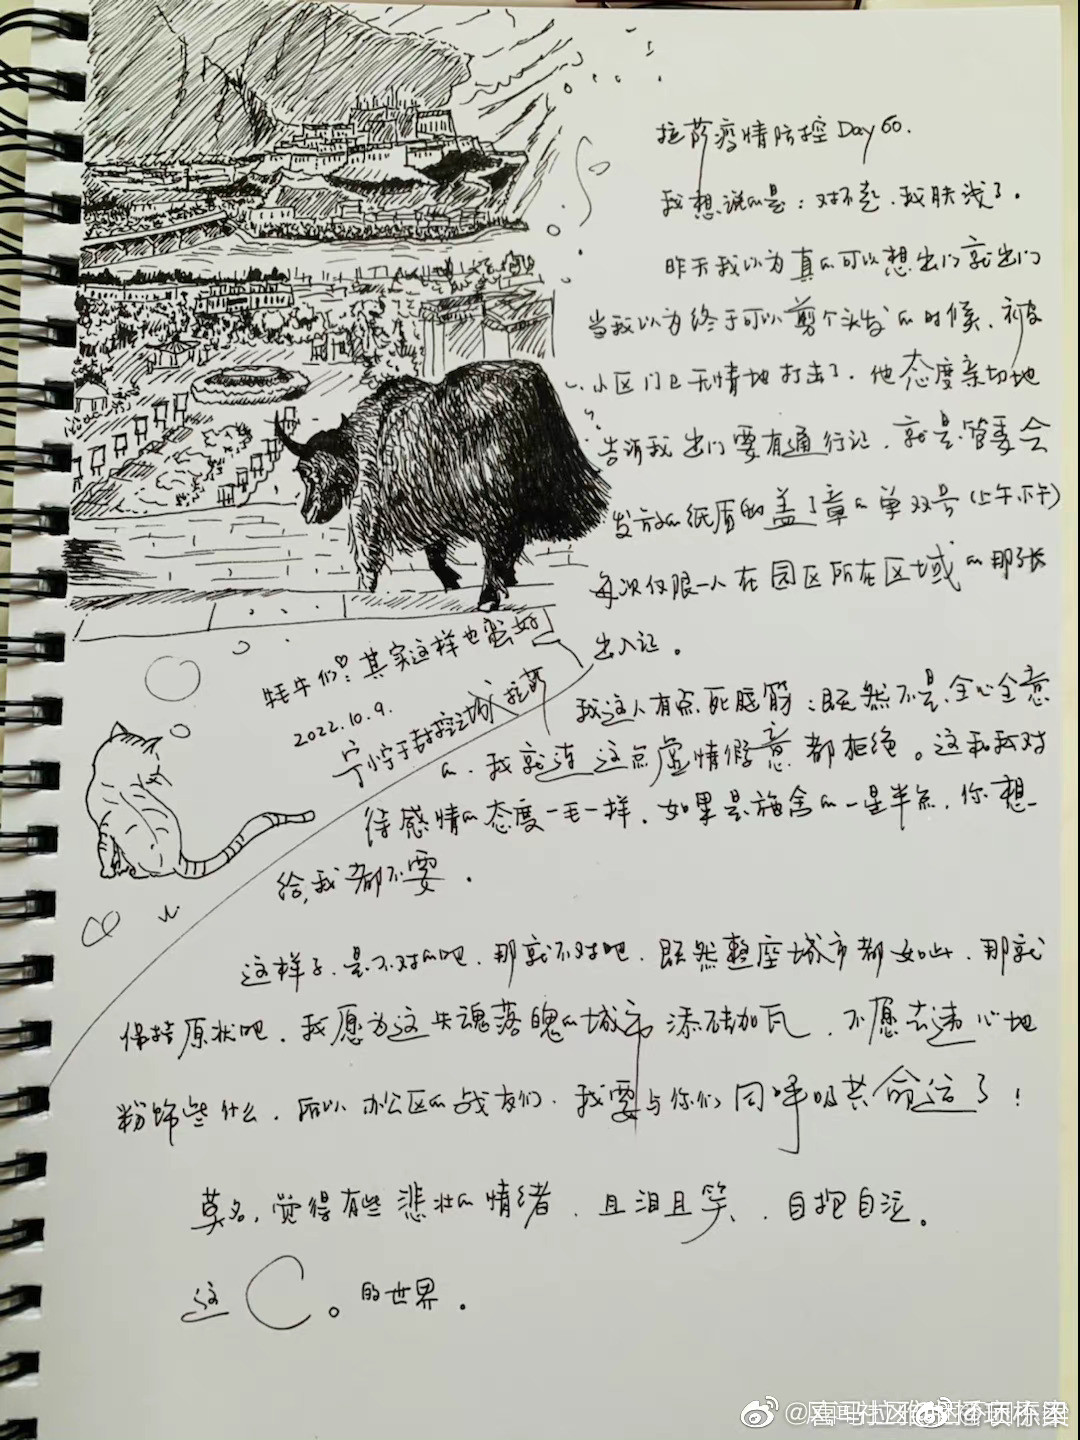 拉萨疫情防控Day60.
我想说的是：对不起，我肤浅了。
昨天我以为真的可以想出门就出门
当我以为终于可以剪个头发的时候、被
小区门卫无情地打击了．他态度亲切地
告诉我出门要有通行记，就是管委会
发放的纸质的盖了章的单双号(上午下午)
每次仅限一人在园区所在区域的那张
出入记。
牦牛们：其实这样也蛮好
2022.10.9.
之城 拉萨
我这人有点死脑筋：既然不是全心全意
的．我就连这点虚情假意都拒绝。这和我对
待感情的态度一毛一样．如果是施舍的一星半点，你想
给，我都不要．
这样子，是不对的吧．那就不对吧．既然整座城市都如此．那就
保持原状吧．我愿为这失魂落魄的城市添砖加瓦．不愿去违心地
粉饰些什么．所以办公区的战友们．我要与你们同呼吸共命运了！
莫名，觉得有些悲壮的情绪．且泪且笑、自把自泣。
这 C。的世界．